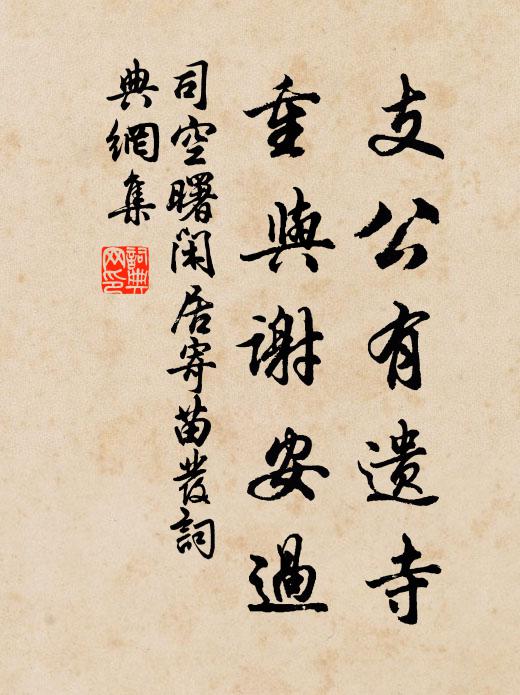 支公有遗寺
重與謝安過
司空曙閑居寄苗發詞
典網集
詞典
网印